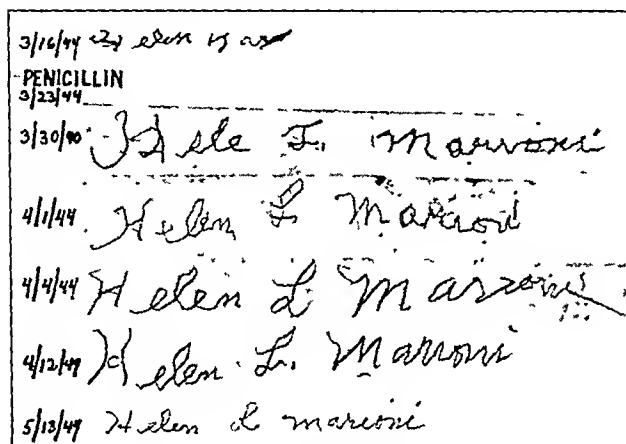 3/16/44 Helen
PENICILLIN
3/23/44
3/30/40 Hele L. Marvoni
4/1/44 Helen L Marioni
4/4/44 Helen L Marioni
4/12/49 Helen L. Marioni
5/13/49 Helen L marioni